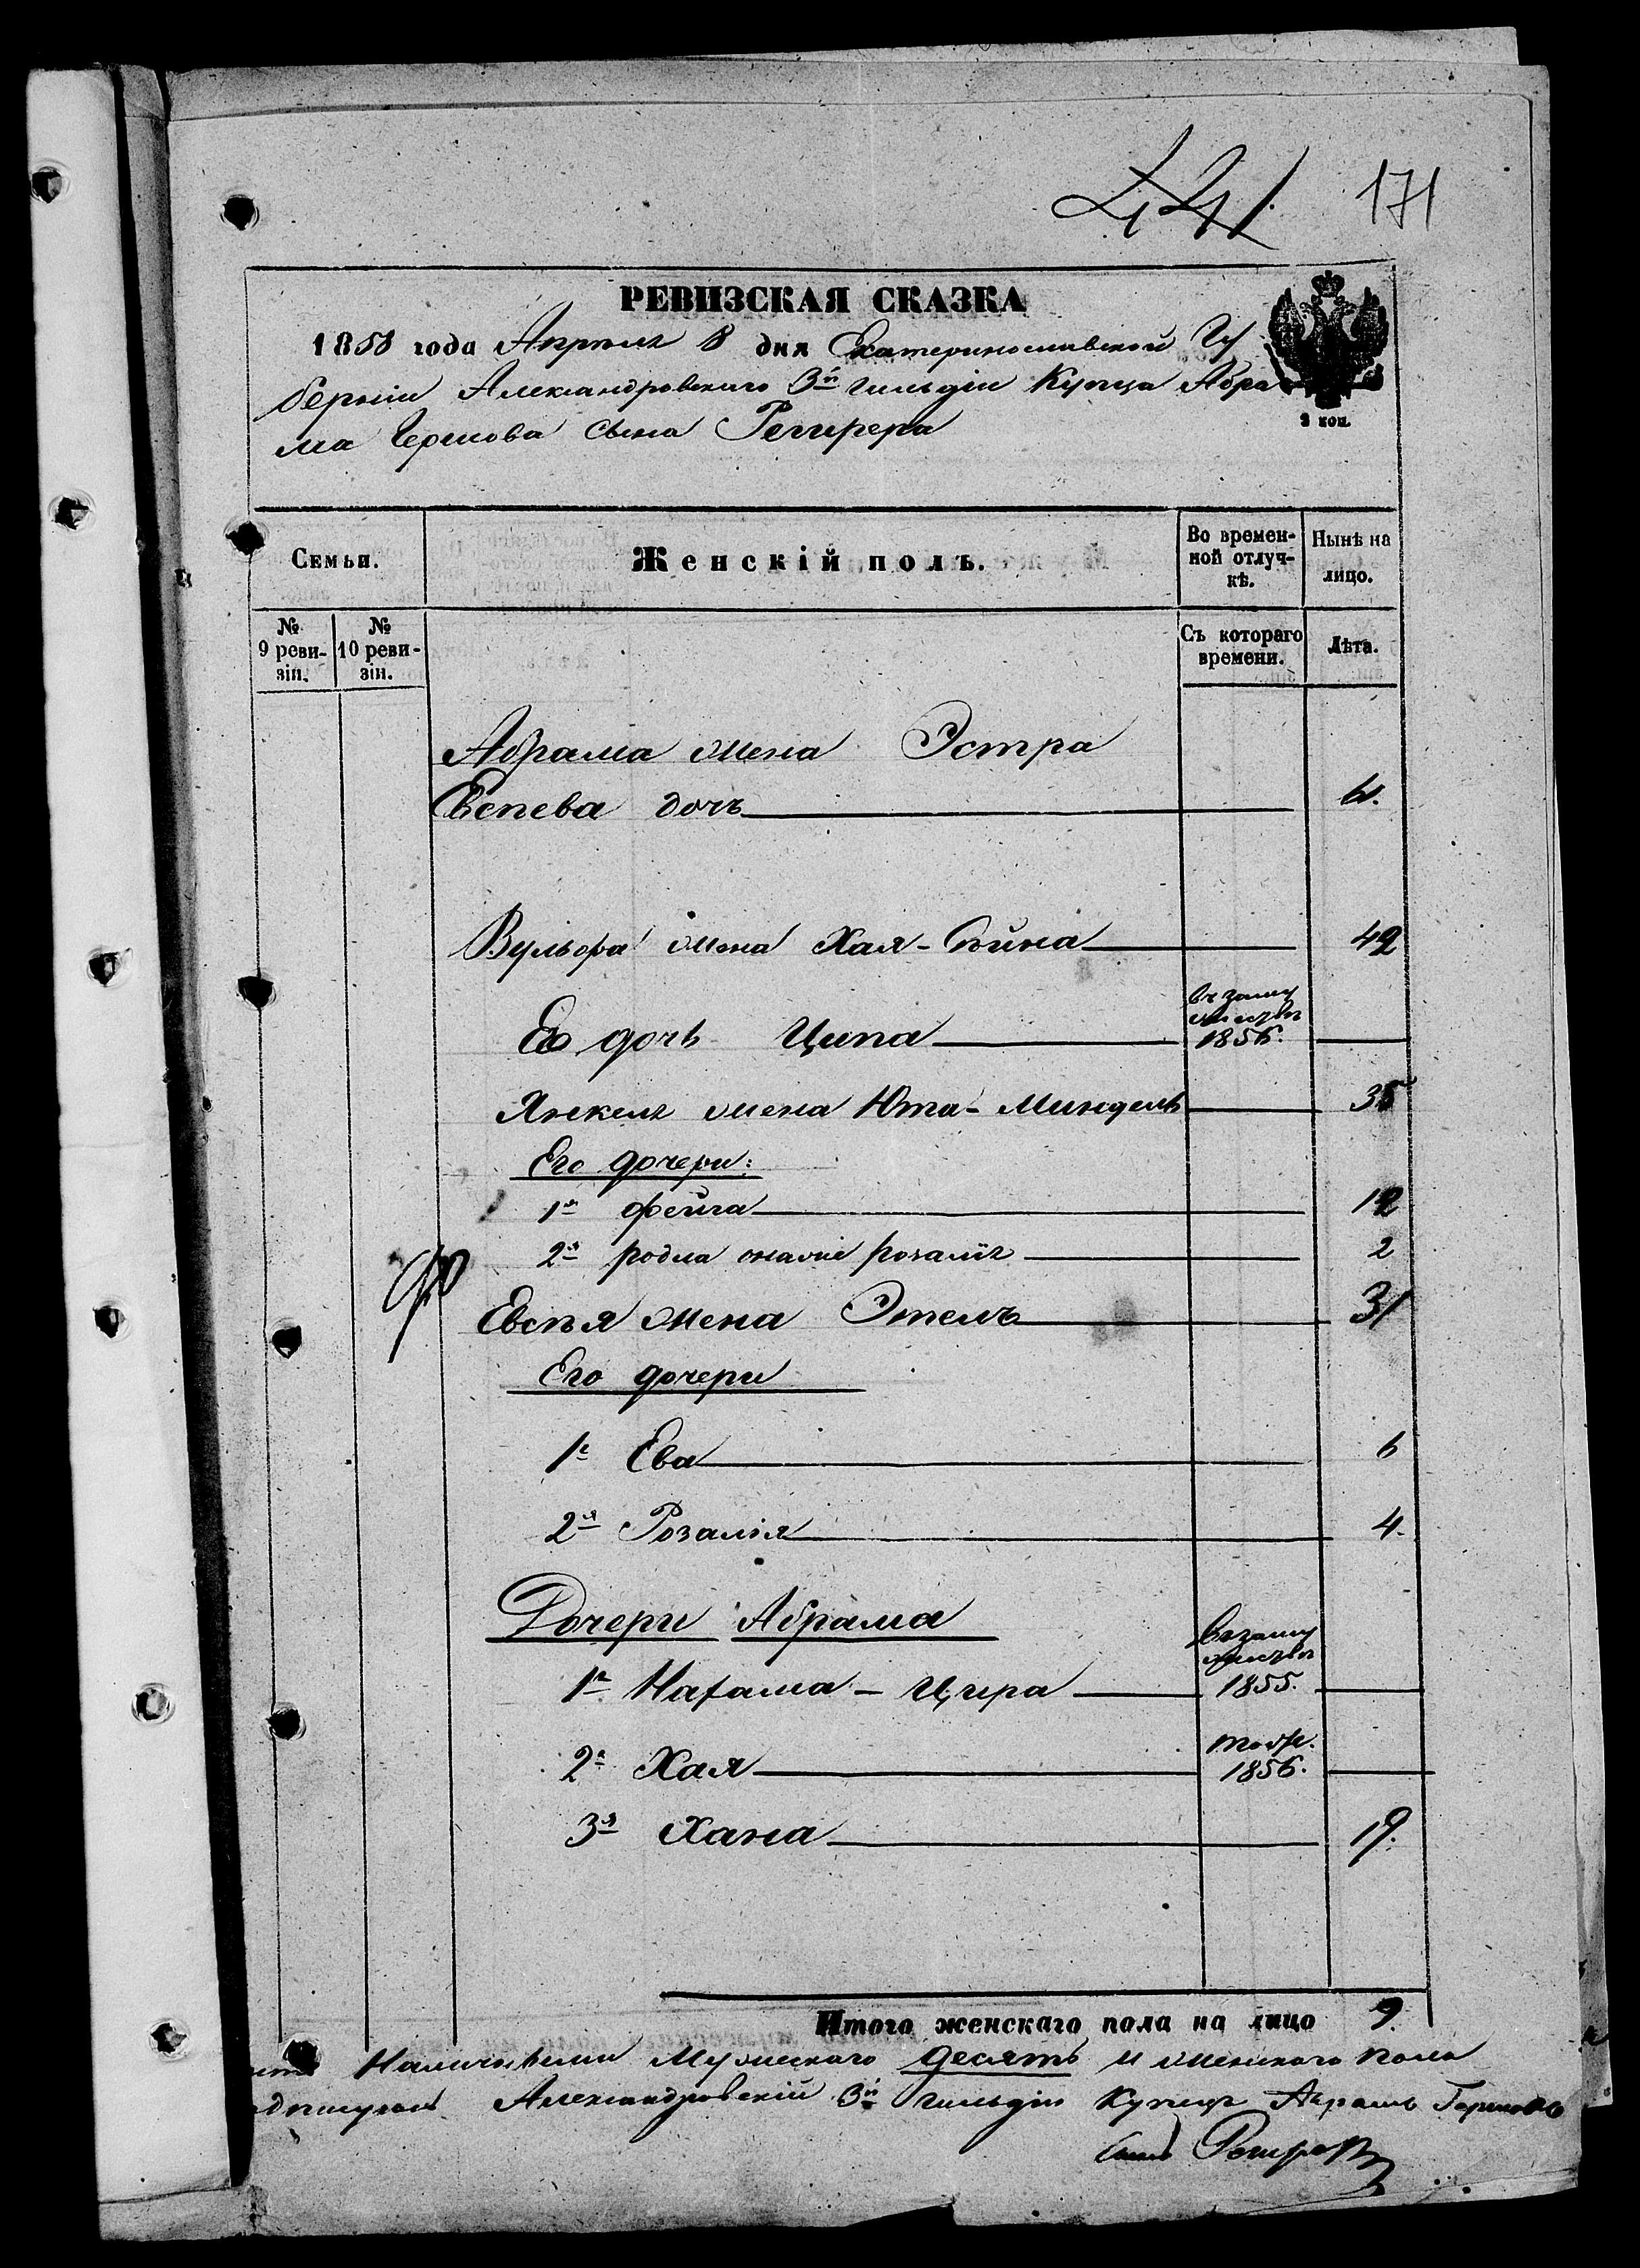 441 171
РЕВИЗСКАЯ СКАЗКА
1858 года Апреля 8 дня Екатеринославской Гу
берніи Александровскаго 3й гильдіи Купца Абра
ма Гершова сына
2 коп.
Семьи.
Женскій полъ.
Во времен-
ной отлуч-
кѣ.
Нынѣ на
лицо.
№
9 реви-
зіи.
№
10 реви-
зіи.
Съ котораго
времени.
Лѣта.
Абрама жена Эстра
дочь
Вульфа жена Хая-Сейна 42
Его дочь Ципа
въ заму
жествѣ
1856.
Янкеля жена Юта-Миндель 35
Его дочери:
1я Фейга 12
2я Родла онаже Розалія 2
Евсѣя жена Этель 31
Его дочери
1я Ева 6
2я Розалія 4.
Дочери Абрама
1я Нахама - Цира
въ заму
жествѣ
1855.
2я Хая
тоже.
1856.
3я Хана 19.
Итого женскаго пола на лицо 9.
Наличными Мужескаго десять и женскаго пола
Александровскій 3й гильдіи Купецъ Абрамъ Гершовъ
сынъ